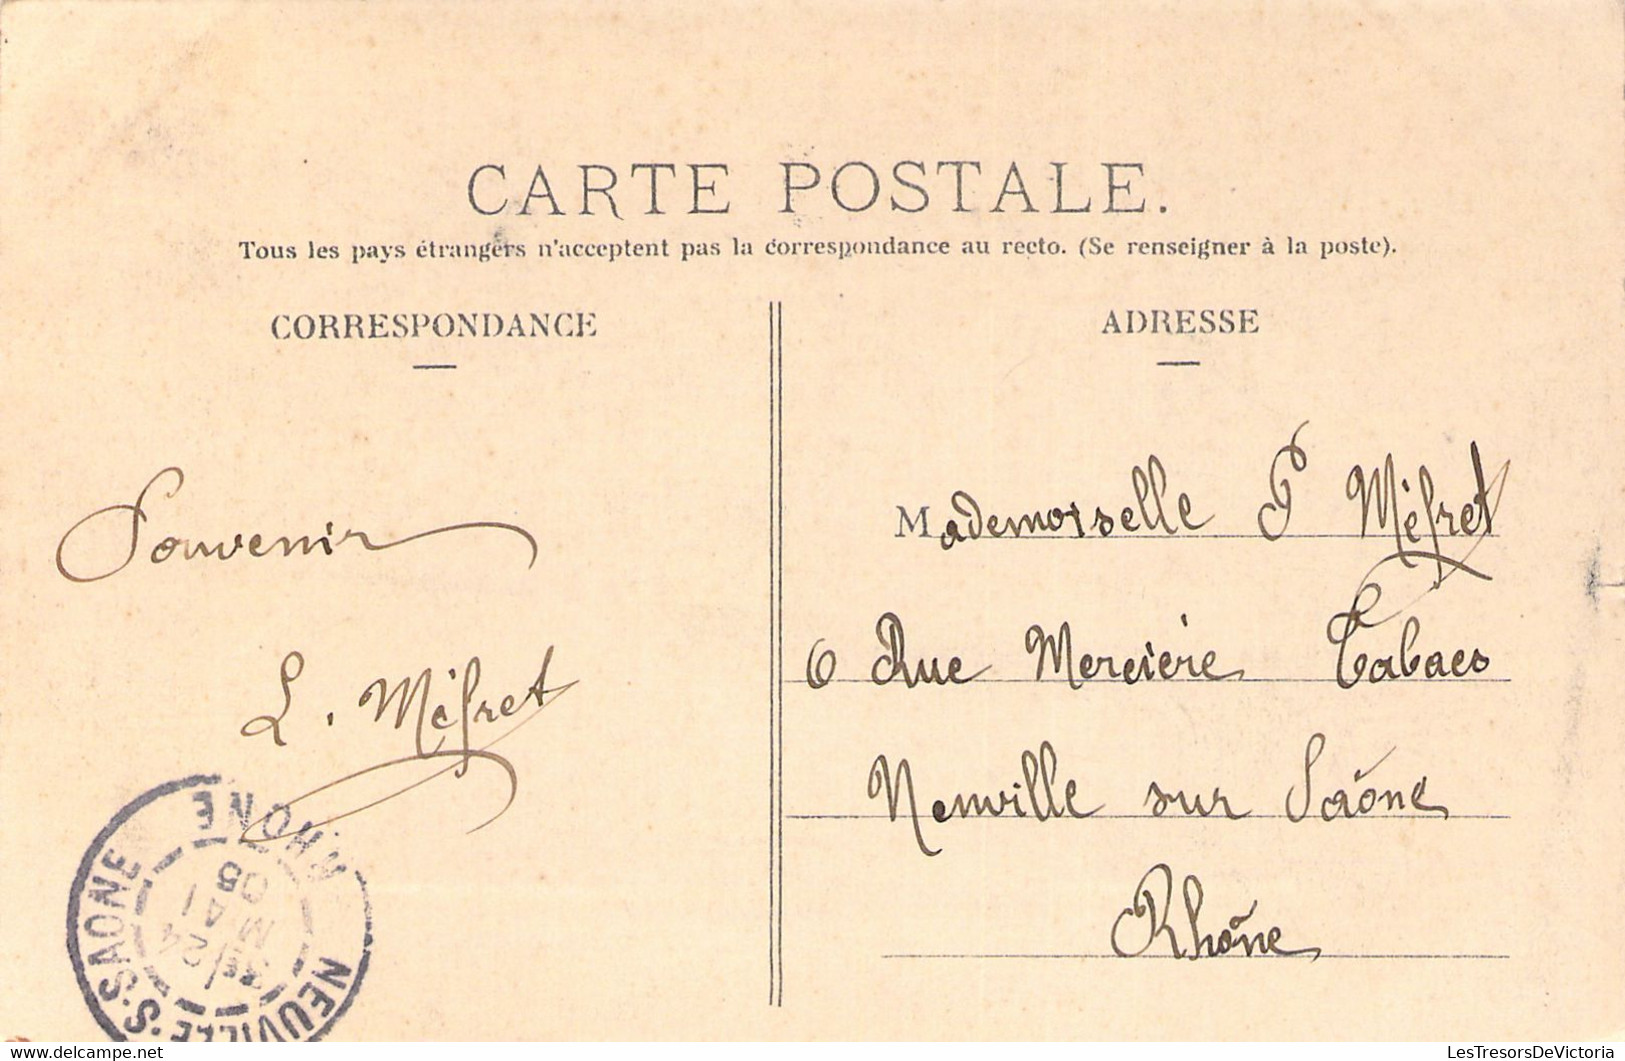 CARTE POSTALE.
Tous les pays étrangers n'acceptent pas la correspondance au recto. (Se renseigner à la poste).
CORRESPONDANCE
Souvenir
L. Méfret
ADRESSE
Mademoiselle P Méfret
6 Rue Mercière Tabacs
Neuville sur Saône
Rhône
NEUVILLE-S-SAONE
RHONE
24
MAI
05
LesTresorsDeVictoria